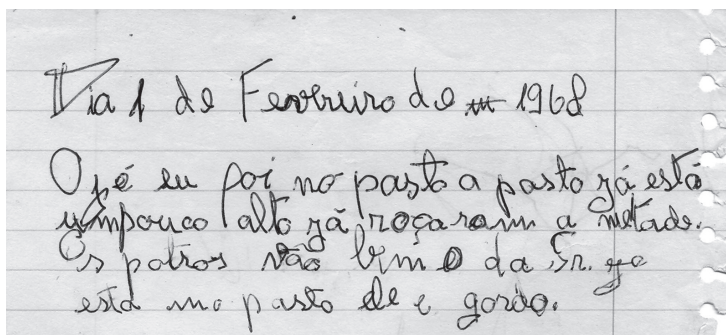 Dia 1 de Fevereiro de 1968
Ojé eu foi no pasto a pasto já está
umpouco alto já roçaram a metade.
Os potros vão bem o da Sr.
está no pasto ele e gordo.